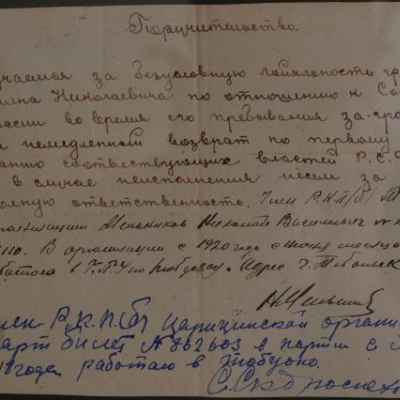 Поручительство.
учаемся за безусловную лойяльность гр
ина Николаевича по отношению к Со
ссии во время его пребывания за-гра
и немедленный возврат по первому
анию соответствующих властей Р.С.Ф
в случае неисполнения несем за
ответственность. Член Р.К.П(б)
организации Мельников Николай Васильевич №
В организации с 1920 года с июня месяца
Адрес г. Тобольск
лен Р.К.П.(б) Царицинской органи
арт билет № 802603 в партии с
годa работаю в